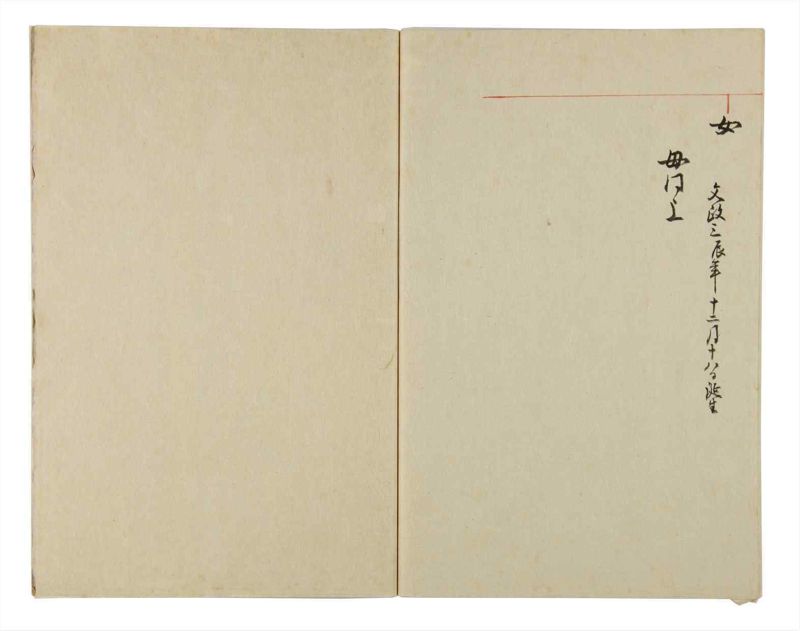 女
文政三辰年十二月十八日誕生
母同上